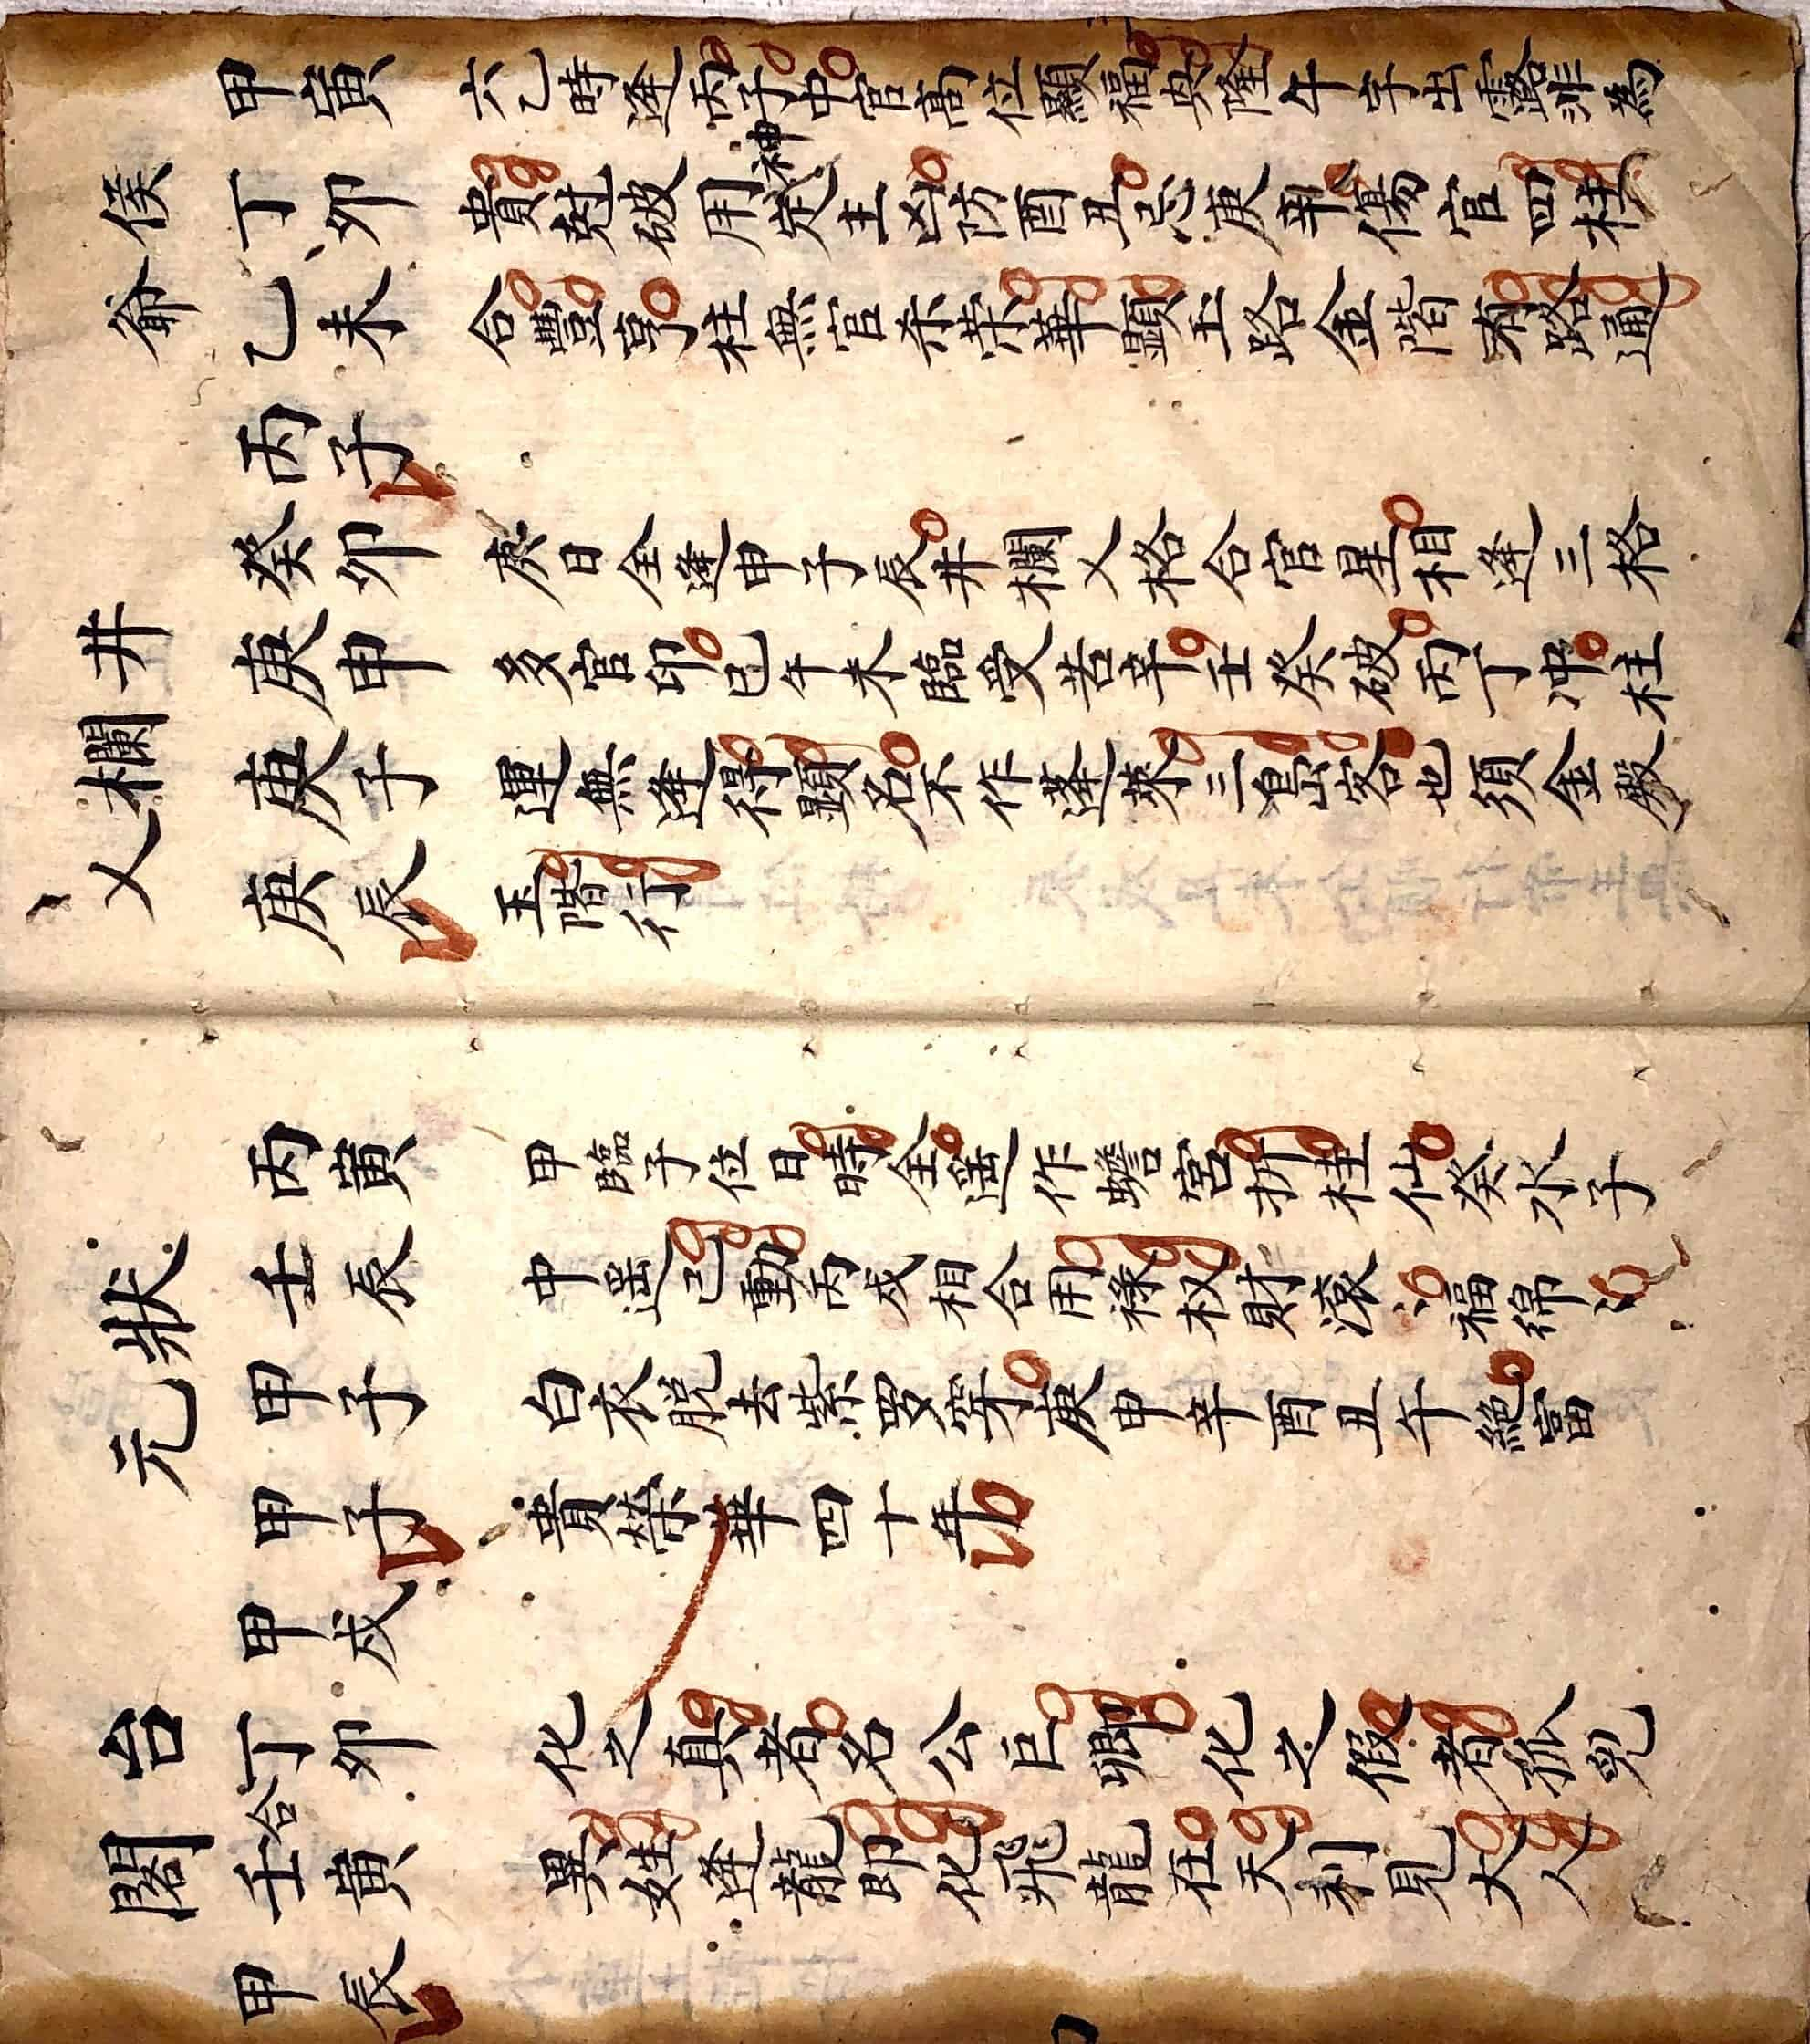 侯爺
甲寅
丁卯
己未
丙子
六己時逢丙子中官高位顯福興隆午字出露難為
貴尅破用神定主凶防酉丑忌庚辛傷官四柱
合豐亨柱無官杀荣華顯玉路金階有路通
井欄乂
癸卯
庚申
庚子
庚辰
庚日全逢申子辰井欄乂格合官星相逢三格
多官印巳午未臨受苦辛壬癸破丙丁冲柱
運無逢得顯名不作蓬萊三島客也須金殿
玉階行
狀元
丙寅
壬辰
甲子
甲子
甲臨子位日時全遥作蟾宮折桂仙癸水子
中遥己動丙戌相合用祿权財滾〻福綿〻
白衣脱去紫罗穿庚申辛酉丑午絕富
貴榮華四十年
台閣
甲戌
丁卯
合
壬寅
甲辰
化之真者名公巨卿化之假者孤兒
異姓逢龍即化飛龍在天利見大人